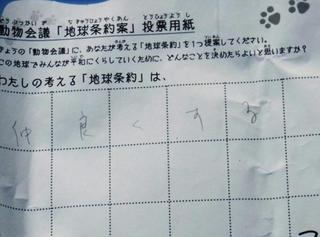 動物会議「地球条約案」投票用紙
きょうの「動物会議」に、あなたが考える「地球条約」を1つ提案してください。
この地球でみんなが平和にくらしていくために、どんなことを決めたらよいと思いますか?
わたしの考える「地球条約」は、
仲良くする